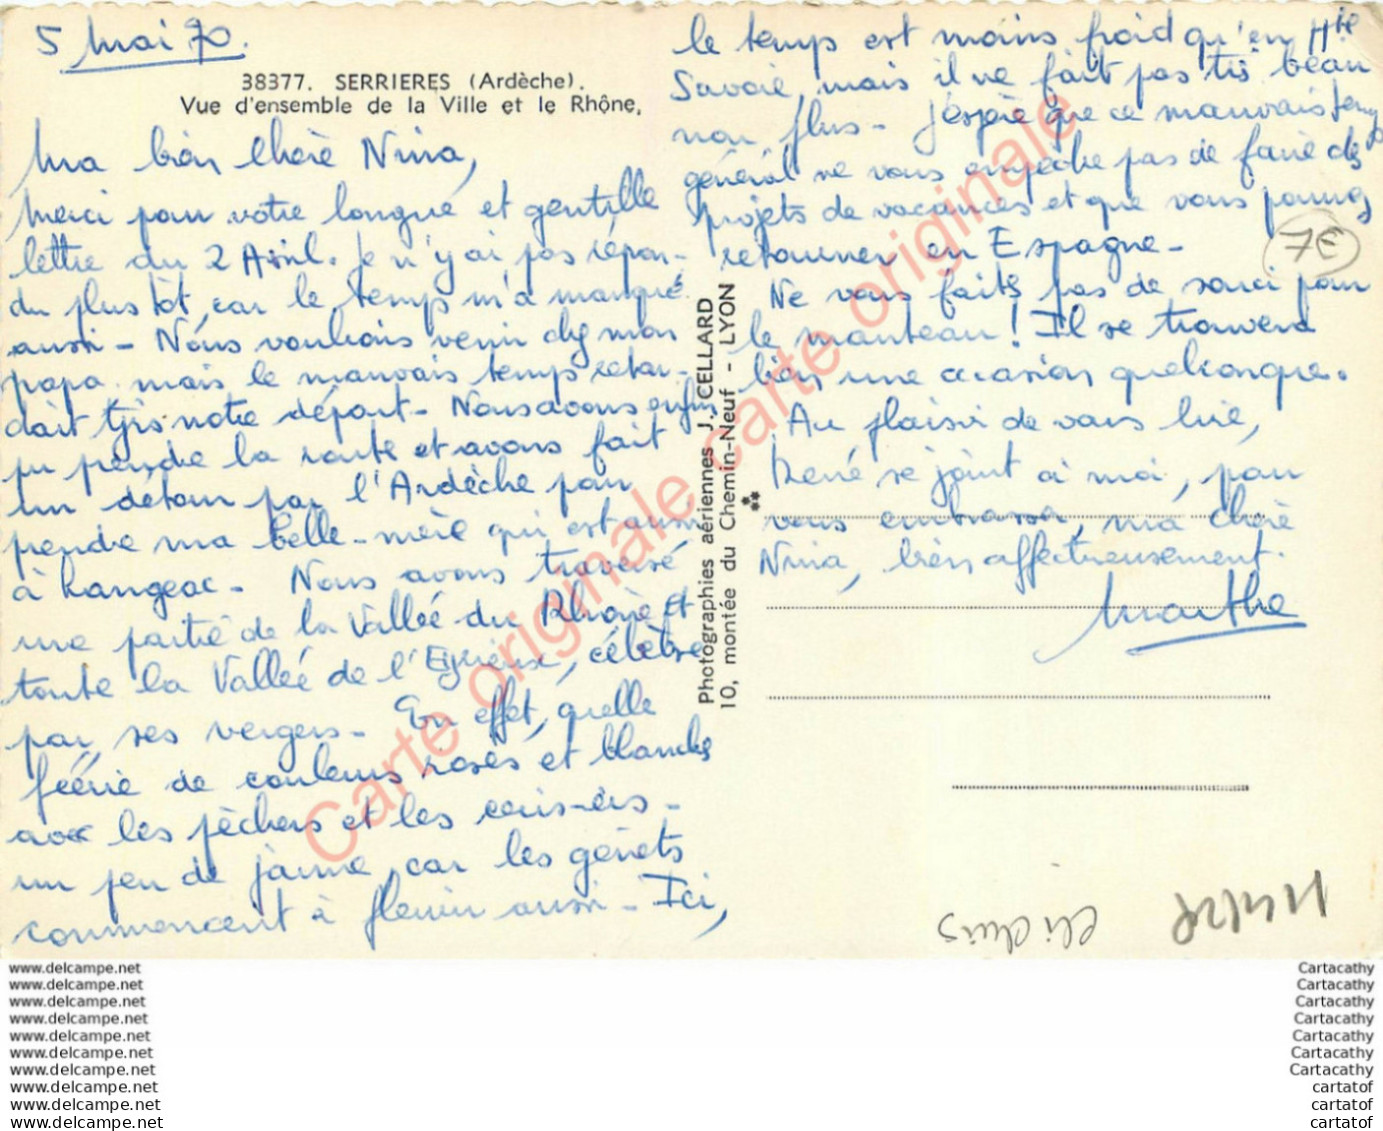 5 Mai 70.
38377. SERRIERES (Ardèche).
Vue d'ensemble de la Ville et le Rhône,
Ma bien Chère Nina,
Merci pour votre longue et gentille
lettre du 2 Avril. Je n'y ai pas répon-
du plus tôt, car le temps m'a manqué
aussi - Nous voulions venir chez mon
papa mais le mauvais temps retar-
dait tjrs notre départ - Nous avons enfin
pu prendre la route et avons fait
un détour par l'Ardèche pour
prendre ma belle-mère qui est aussi
à Langeac - Nous avons traversé
une partie de la Vallée du Rhône et
toute la Vallée de l'Eyrieux, célèbre
par ses vergers - En effet, quelle
féerie de couleurs roses et blanches
avec les pêchers et les cerisiers -
un peu de jaune, car les genêts
commencent à fleurir aussi - Ici,
le temps est moins froid qu'en Hte
Savoie, mais il ne fait pas très beau
non plus - J'espère que ce mauvais temps
général ne vous empêche pas de faire des
projets de vacances et que vous pourrez
retourner en Espagne -
Ne vous faites pas de souci pour
le manteau! Il se trouvera
bien une occasion quelconque.
Au plaisir de vous lire,
René se joint à moi, pour
vous embrasser, ma chère
Nina, bien affectueusement.
Marthe
7€
Photographies aériennes J. CELLARD
10, montée du Chemin-Neuf - LYON
Carte originale carte originale
www.delcampe.net
www.delcampe.net
www.delcampe.net
www.delcampe.net
www.delcampe.net
www.delcampe.net
www.delcampe.net
www.delcampe.net
www.delcampe.net
www.delcampe.net
Cartacathy
Cartacathy
Cartacathy
Cartacathy
Cartacathy
Cartacathy
Cartacathy
cartatof
cartatof
cartatof